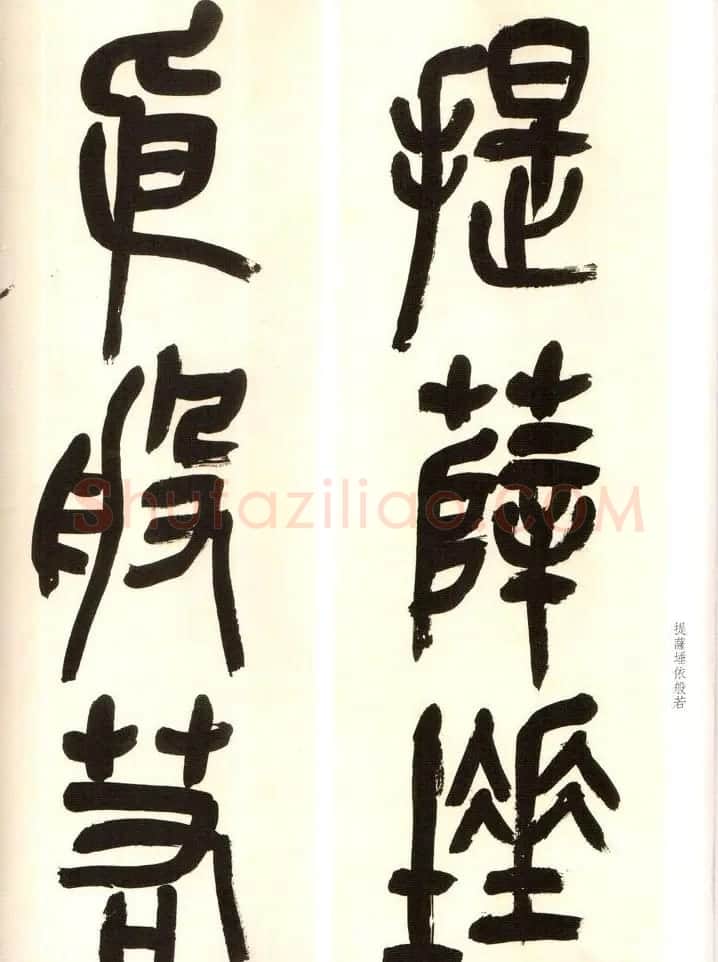 提薩埵
依般若
提薩埵依般若
Shufaziliao.COM